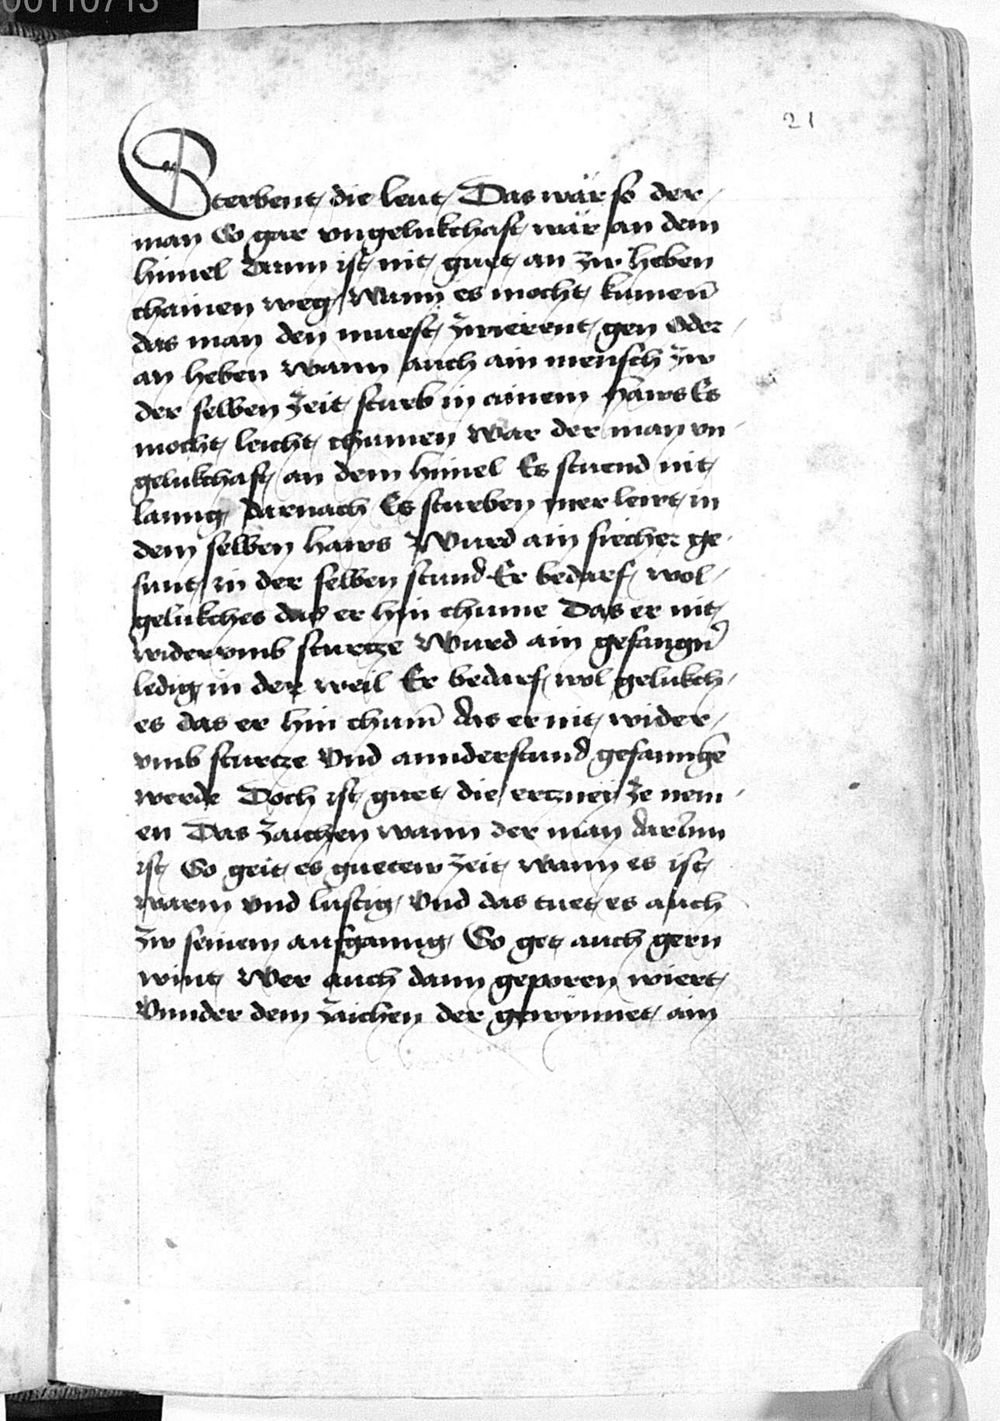 00110713
21
Sterbent die leut Das wär so der
man So gar vngelukchaft wär an dem
himel Dann ist nit guet an zw heben
chainen weg Wann es mocht kumen̄
das man den muest zwierent gen Oder
an heben Wann auch ain mensch zw
der selben zeit sturb in ainem haws Es
mocht leicht chumen War der man vn
gelukchaft an dem himel Es stuend nit
lanng darnach Es sturben mer lewt in
dem selben haws Wurd ain siecher ge
sunt in der selben stund Er bedarf wol
gelukches das er hin chume Das er nit
widervmb sturtze Wurd ain gefangn̄
ledig in der weil Er bedarf wol gelukch
es das er hin chum̄ das er nit wider
vmb sturtze Vnd annderstund gefannḡe
werde Doch ist guet die ertznei ze nem
en Das zaichen wann der man darInn
ist So geit es guetew zeit wann es ist
warm vnd lustig Vnd das tuet es auch
zw seinem aufganng So get auch gern
wint Wer auch dann geporen wiert
Vnnder dem zaichen der gewynnet ain